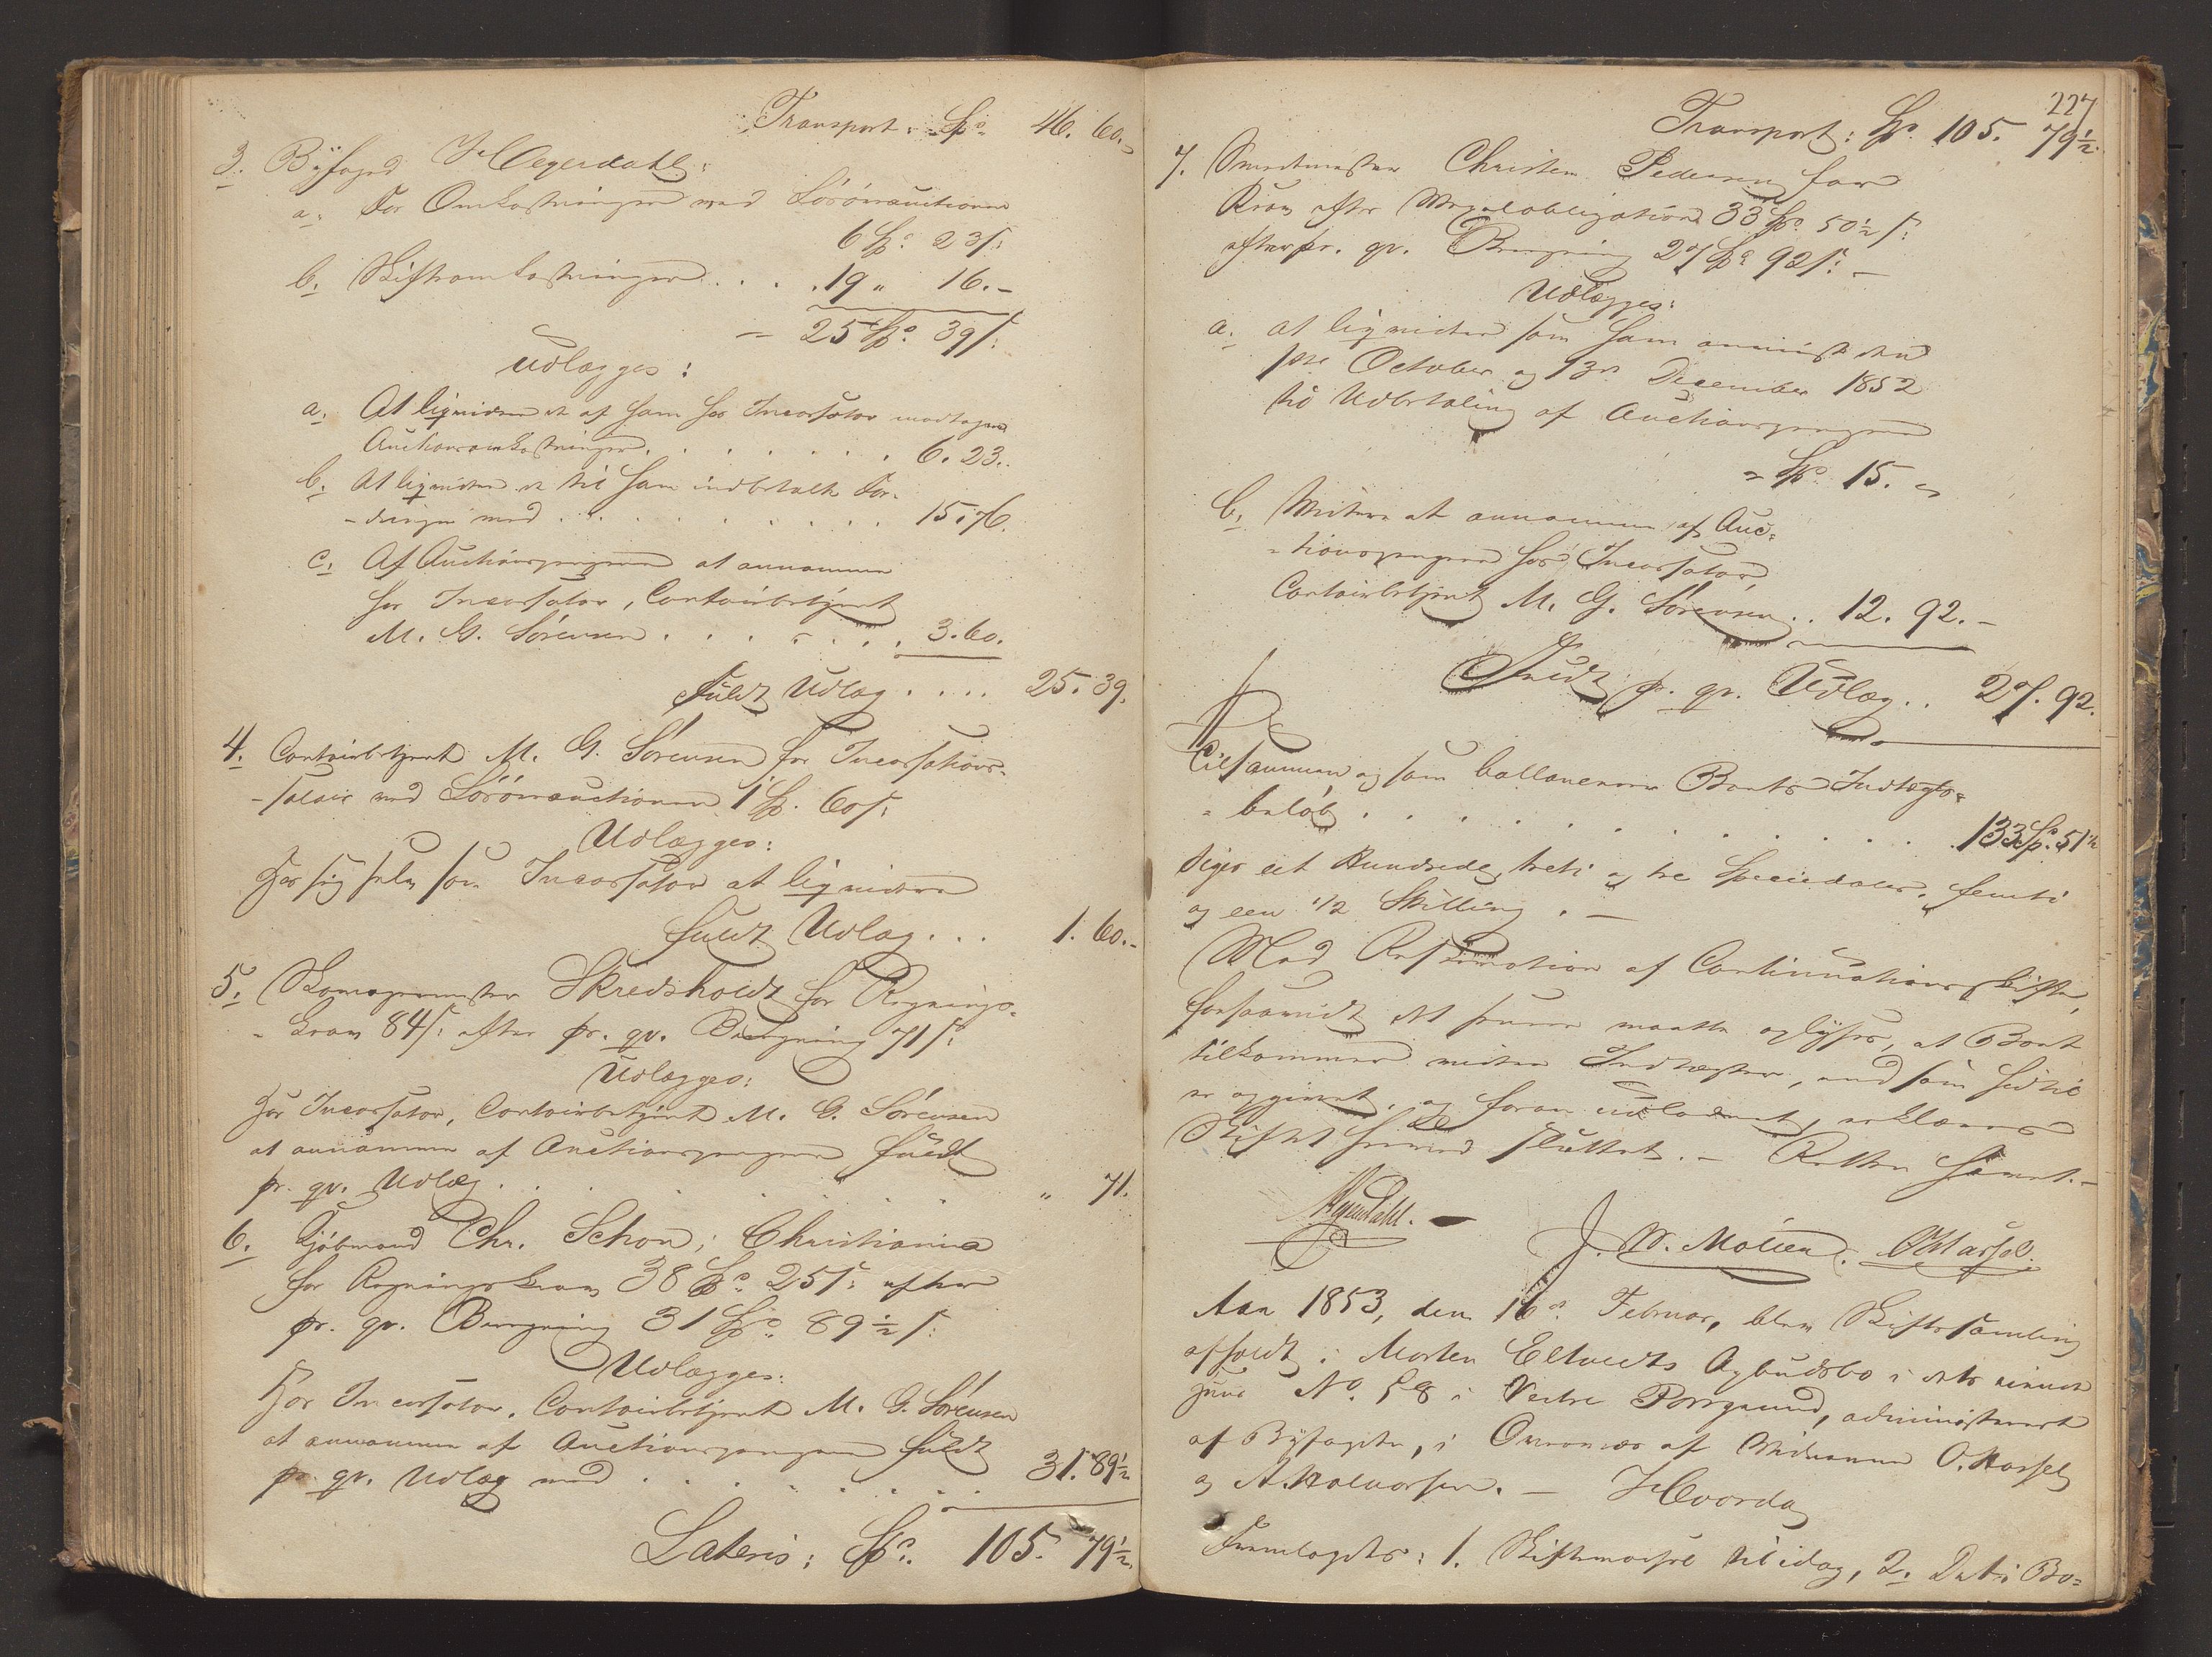 Transport: Sp. 46. 60.
3. Byfoged Hegerdahl:
a. For Omkostninger ved Løsøreauctionen
6 Sp. 23 s:
b. Skifteomkostninger . . . . 19 " 16. -
– 25 Sp. 39 s:
Udlægges:
a. At liqvidere et af ham hos Incassator modtagne
Auctionsomkostninger . . . . . . . . 6. 23.
b. At liqvidere et til ham indbetalte For-
-dringer med . . . . . . . . . 15. 76.
c. Af Auctionspengene at annamme
hos Incassator, Contoirbetjent
M. G. Sörensen . . . . . . . 3. 60.
fuldt Udlæg . . . . 25. 39.
4. Contoirbetjent M. G. Sörensen for Incassations-
-salair ved Løsøreauctionen 1 Sp. 60 s:
Udlægges:
Hos sig selv som Incassator at liqvidere
fuldt Udlæg . . . 1. 60. -
5. Skomagermester Skredsholdt for Regnings-
-krav 84 s: efter pr. qv. Beregning 71 s:
Udlægges:
Hos Incassator, Contoirbetjent M. G. Sörensen
at annamme af Auctionspengene fuldt
pr. qv. Udlæg . . . . . . . " 71.
6. Kjöbmand Chr. Schou, i Christiania
for Regningskrav 38 Sp. 25 s: efter
pr. qv. Beregning 31 Sp. 89 ½ s:
Udlægges:
Hos Incassator, Contoirbetjent M. G. Sörensen
at annamme af Auctionspengene fuldt
pr. qv. Udlæg med . . . . . . 31. 89½
Lateris: Sp. 105. 79½.
227
Transport: Sp. 105. 79½.
7. Smedmester Christen Pedersen for
Krav efter Vexelobligation 33 Sp. 50½ s:
efter pr. qv. Beregning 27 Sp. 92 s: –
Udlægges:
a. at liqvidere som ham anviist den
1ste October og 13de December 1852
til Udbetaling af Auctionspengene
– Sp. 15. "
b. Videre at annamme af Auc-
-tionspengene hos Incassator,
Contoirbetjent M. G. Sörensen . . 12. 92. –
Fuldt pr. qv. Udlæg . . 27. 92.
Tilsammen og som ballancerer Boets Indtægts-
-beløb . . . . . . . . . . . . 133 Sp. 51½
siger eet Hundrede, treti og tre Speciedaler, femti
og een 1/2 Skilling. –
Med Reservation af Continuationsskifte,
forsaavidt det senere maatte oplyses, at Boet
tilkommer videre Indtægter, end som hidtil
er opgivet, og foran udlodnet, erklæres
Skiftet hermed sluttet. – Retten hævet. –
Hegerdahl. –
J. W. Möller. O Hassel.
Aar 1853, den 16de Februar, blev Skiftesamling
afholdt i Morten Eltvedts Opbudsbo i dets iboende
No. 58 i Vestre Porsgrund, administreret
af Byfogden, i Overvær af Vidnerne O. Hassel
og A. Halvorsen. – Hvorda
Fremlagdes: 1. Skiftevarsel til idag, 2. Det i Bo-